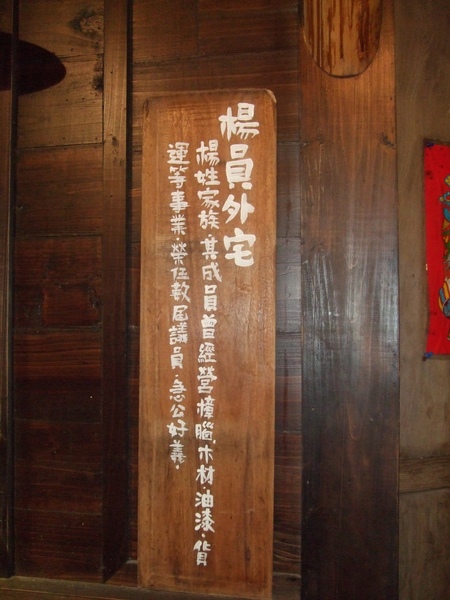 楊員外宅
楊姓家族·其成員曾經營樟腦.木材·油漆·貨
運等事業·榮任數屆議員·急公好義·